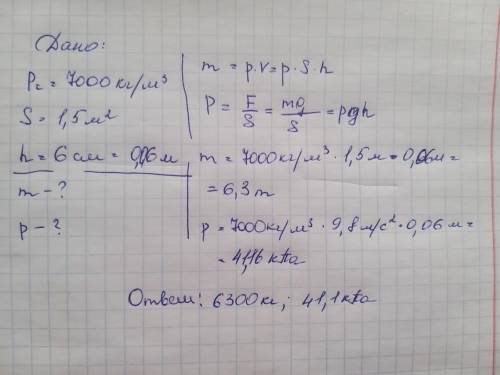 Дано:
ρг = 7000 кг/м³
S = 1,5 м²
h = 6 см = 0,06 м
m - ?
p - ?
m = ρ·V = ρ·S·h
P = F/S = mg/S = ρgh
m = 7000 кг/м³ · 1,5 м · 0,06 м =
= 6,3 т
p = 7000 кг/м³ · 9,8 м/с² · 0,06 м =
= 41,16 кПа
Ответ: 6300 кг; 41,1 кПа